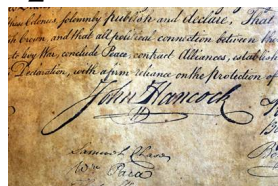 these Colonies, solemnly publish and declare, That
sh Crown, and that all political connection between the
to levy War, conclude Peace, contract Alliances, establish
Declaration, with a firm reliance on the protection of
John Hancock
Samuel Chase
Wm. Paca